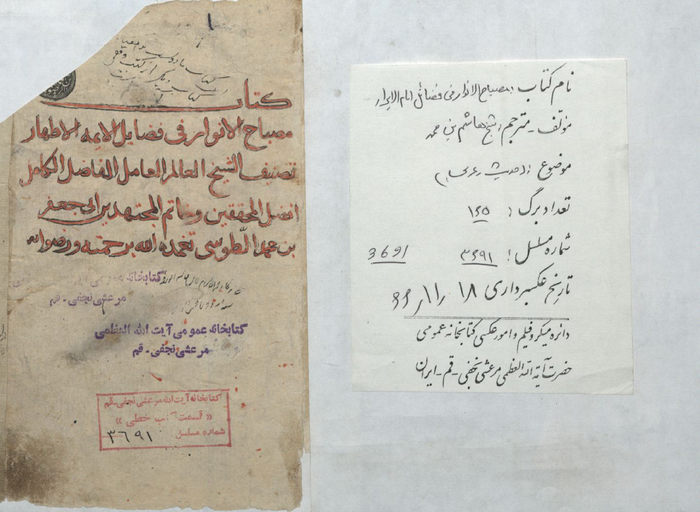 كتاب
مصباح الانوار فى فضايل الايمه الاطهار
تصنيف الشيخ العالم العامل الفاضل الكامل
افضل المحققين وخاتم المجتهدين ابى جعفر
بن محمد الطوسى تغمده الله برحمته ورضوانه
کتابخانه عمومی
مرعشی نجفی - قم
کتابخانه عمومی آیت الله العظمی
مرعشی نجفی - قم
کتابخانه آیت الله مرعشی نجفی - قم
« قسمت کتب خطی »
شماره مسلسل ٣٦٩١
نام کتاب: مصباح الانوار فی فضائل امام الابرار
مؤلف - مترجم: شیخ هاشم بن محمد
موضوع: احادیث (عربی)
تعداد برگ: ١٦٥
شماره مسلسل: ٣٦٩١ 3691
تاریخ عکسبرداری ١٨
دائره میکروفیلم و امور عکسی کتابخانه عمومی
حضرت آیة الله العظمی مرعشی نجفی - قم - ایران